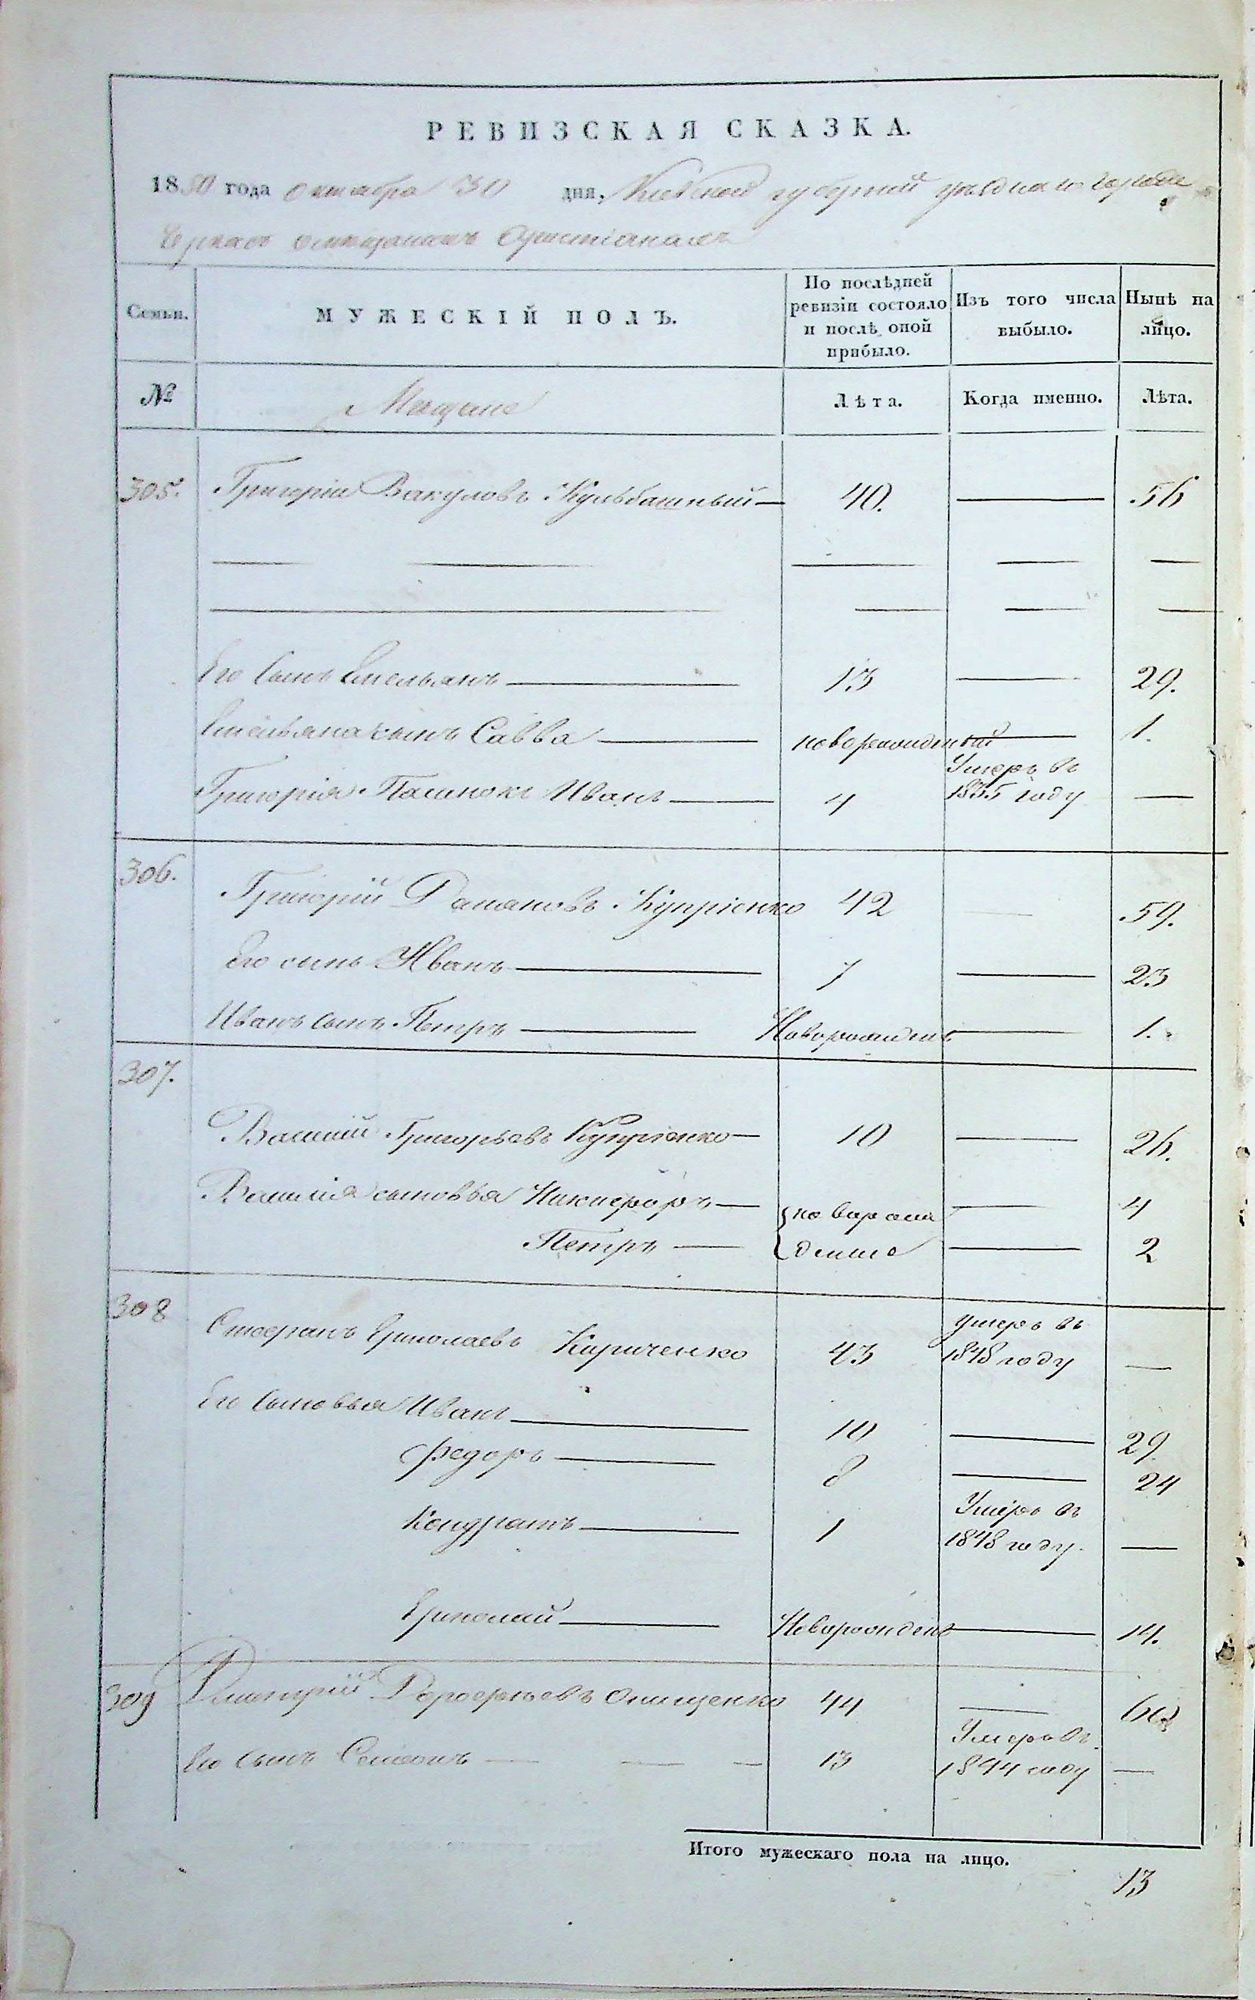 РЕВИЗСКАЯ СКАЗКА.
1850 года октября 30 дня, Киевской губернии уезднаго города
Черкас о мещанахъ Христіанахъ
Семьи. МУЖЕСКІЙ ПОЛЪ. По послѣдней ревизіи состояло и послѣ оной прибыло. Изъ того числа выбыло. Нынѣ на лицо.
№ Мещане Лѣта. Когда именно. Лѣта.
305. Григорій Вакуловъ Кульбашный — 40. — 56
— — — — —
— — — —
Его сынъ Емельянъ — 13 — 29.
Емельяна сынъ Савва — новорожденный — 1.
Григорія Пасынокъ Иванъ — 4 Умеръ въ 1835 году —
306. Григорій Купріенко 42 — 59.
Его сынъ Иванъ — 7 — 23
Иванъ сынъ Петръ — Новорожденъ — 1.
307.
Василій Григорьевъ Купріенко — 10 — 26.
Василія сыновья Никифоръ — новорож — 4
Петръ — денные — 2
308 Стефанъ Ермолаевъ Кириченко 43 Умеръ въ 1848 году —
Его сыновья Иванъ — 10 — 29.
Федоръ — 8 — 24
Кондратъ — 1 Умеръ въ 1848 году. —
Ермолай — Новорожденъ — 14.
309 Дмитрій Дорофеевъ Онищенко 44 — 60
Его сынъ Семенъ — — — 13 Умеръ въ 1844 году —
Итого мужескаго пола на лицо.
13